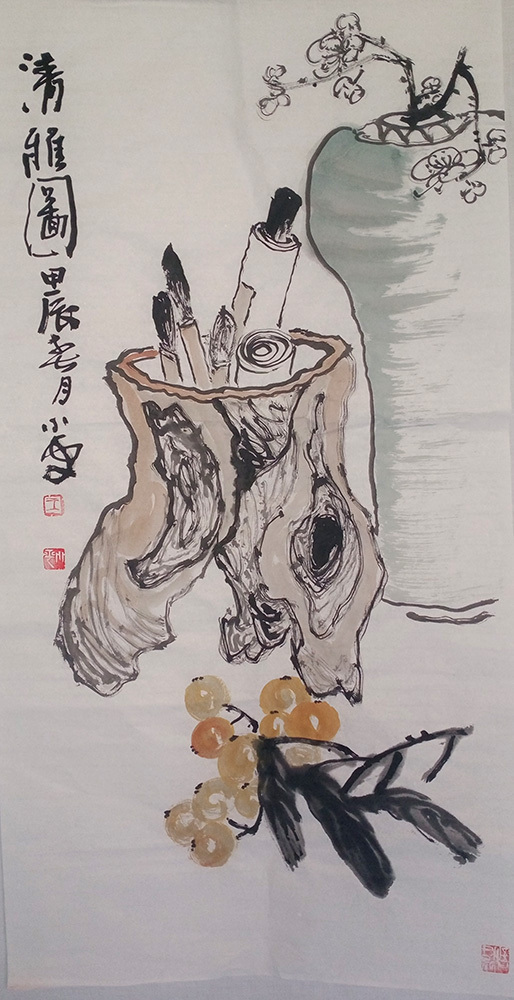 清雅圖甲辰春月小